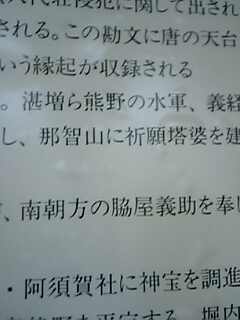 代荘侵犯に関して出され
される。この勘文に唐の天台
いう縁起が収録される
。湛増ら熊野の水軍、義経
し、那智山に祈願塔婆を建
、南朝方の脇屋義助を奉じ
・阿須賀社に神宝を調進